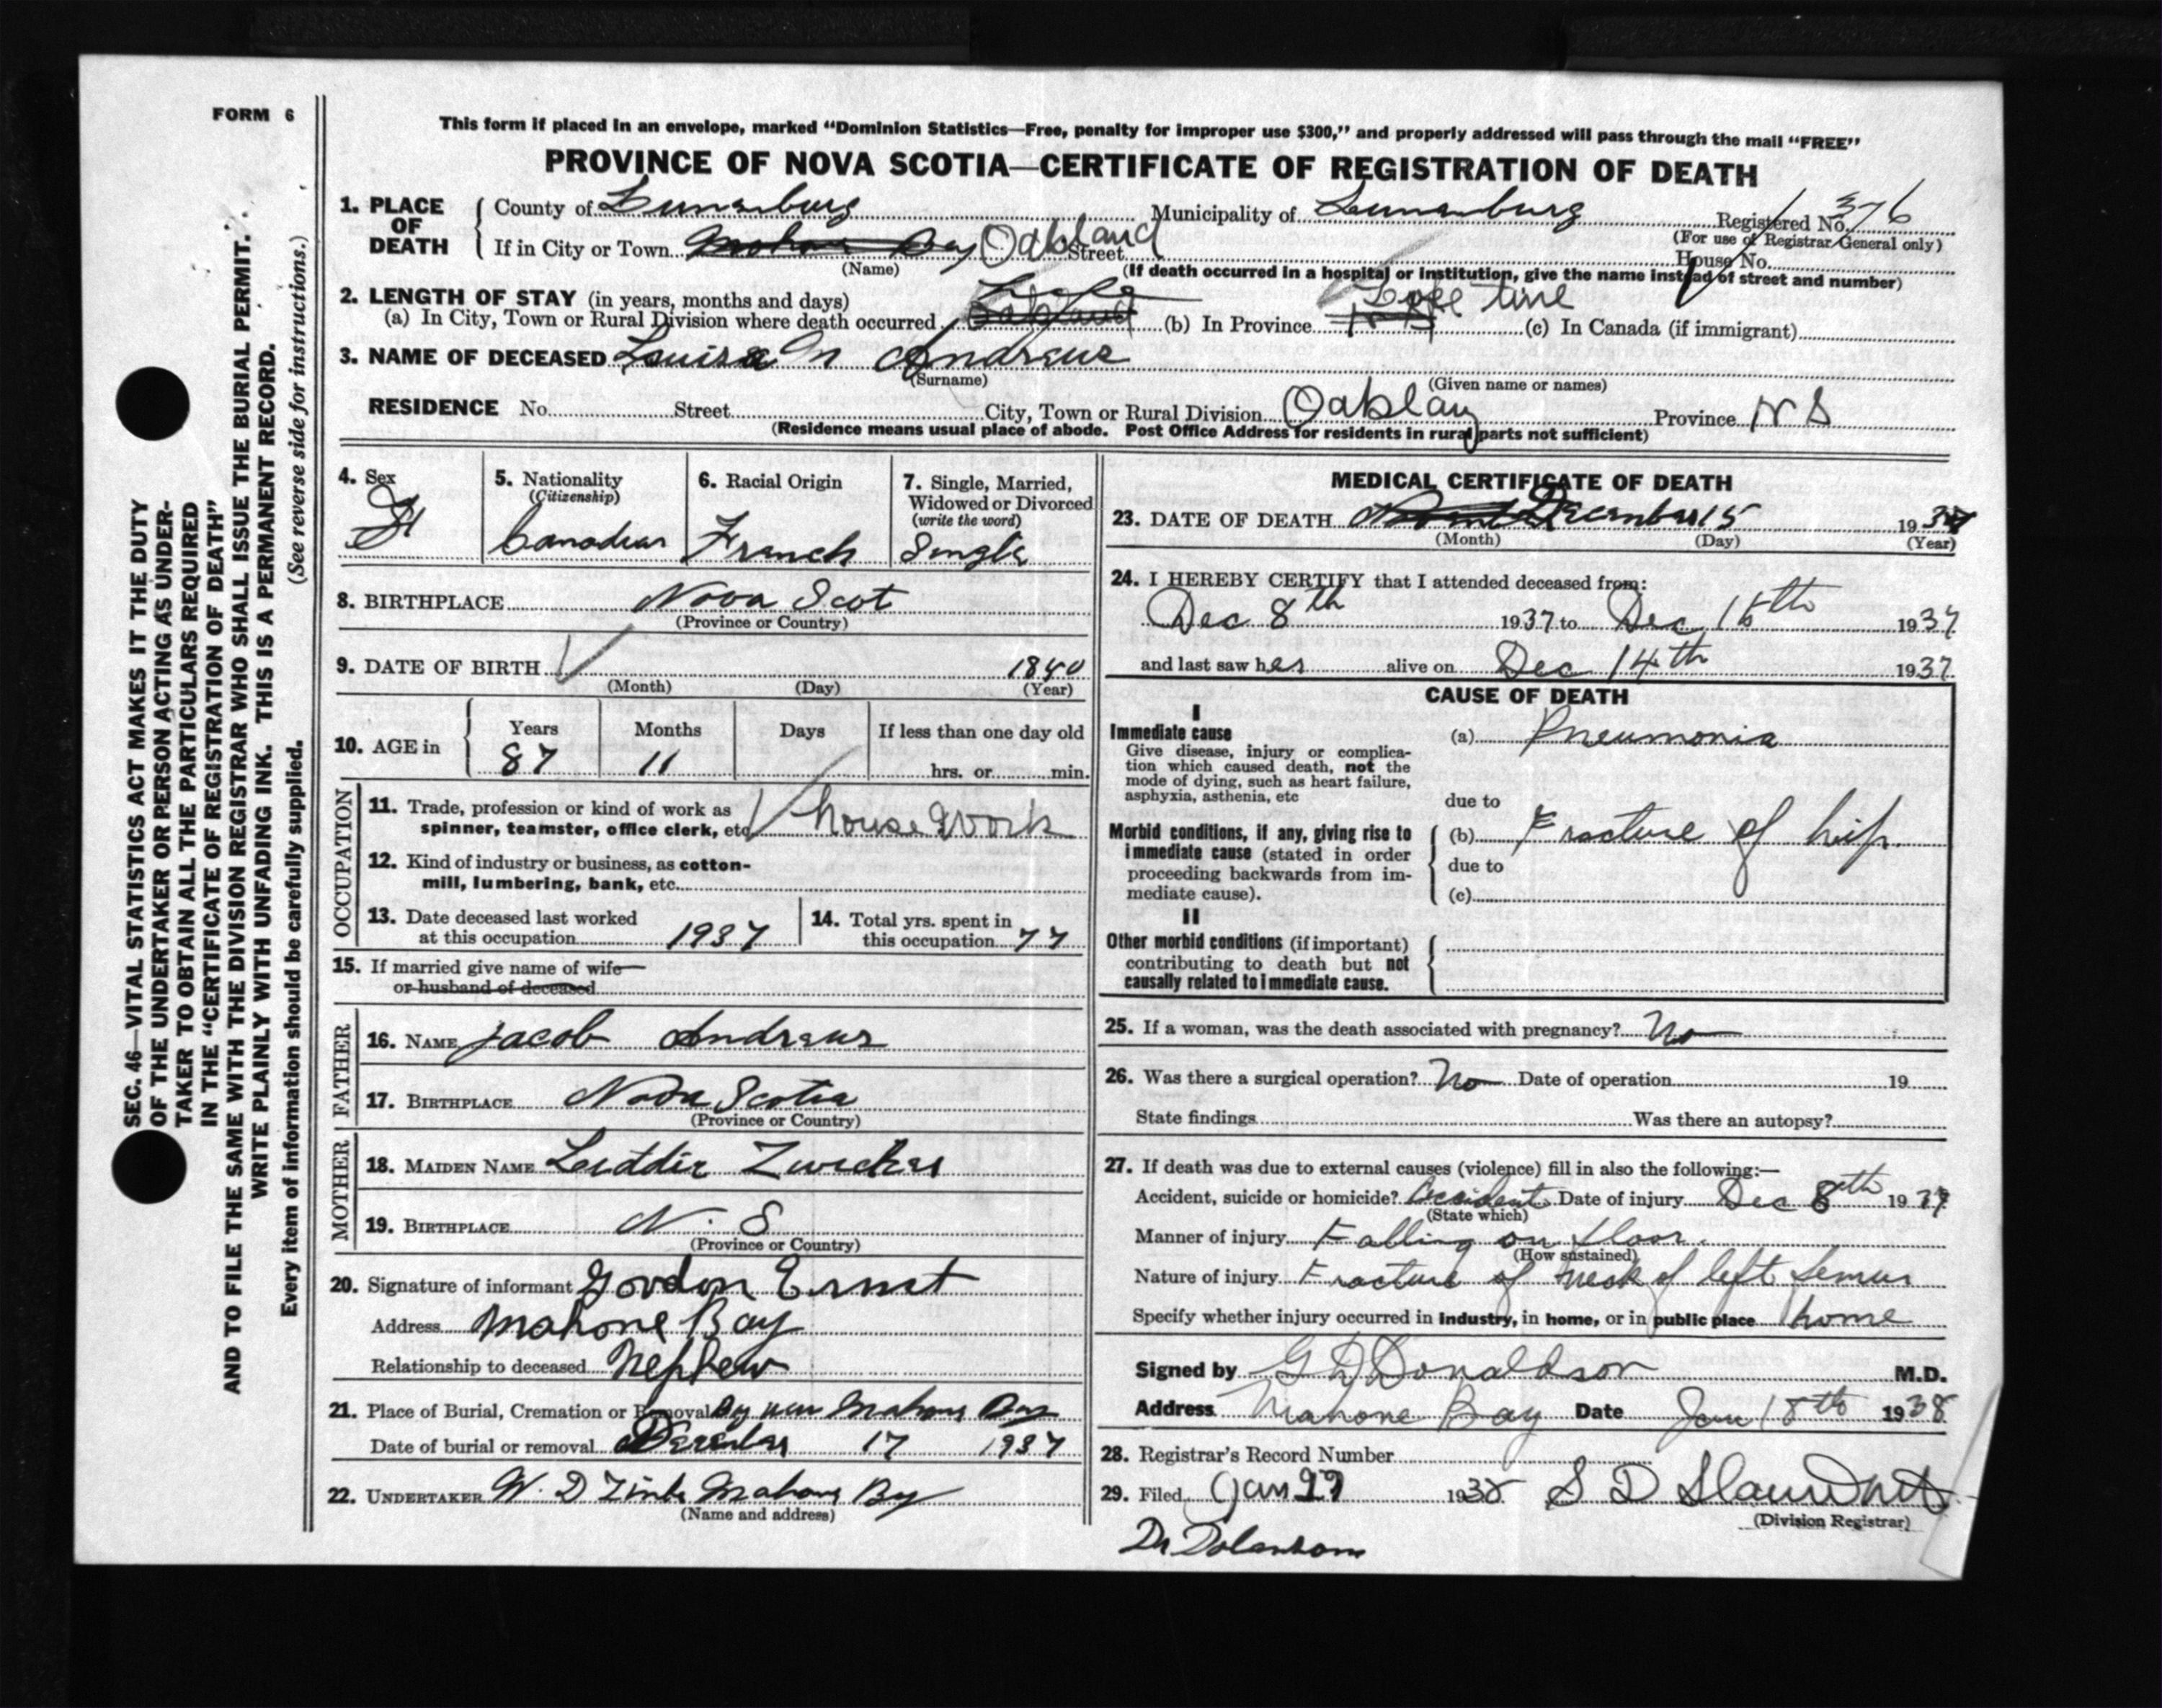 FORM 6
This form if placed in an envelope, marked “Dominion Statistics—Free, penalty for improper use $300,” and properly addressed will pass through the mail “FREE”
PROVINCE OF NOVA SCOTIA—CERTIFICATE OF REGISTRATION OF DEATH
1. PLACE OF DEATH County of Lunenburg Municipality of Lunenburg Registered No. 1376
(For use of Registrar General only)
If in City or Town Mahone Bay Oakland Street House No.
(Name) (If death occurred in a hospital or institution, give the name instead of street and number)
2. LENGTH OF STAY (in years, months and days)
(a) In City, Town or Rural Division where death occurred Life Oakland (b) In Province Life time N S (c) In Canada (if immigrant)
3. NAME OF DECEASED Louisa M Andrews
(Surname) (Given name or names)
RESIDENCE No. Street City, Town or Rural Division Oakland Province N S
(Residence means usual place of abode. Post Office Address for residents in rural parts not sufficient)
4. Sex F
5. Nationality (Citizenship) Canadian
6. Racial Origin French
7. Single, Married, Widowed or Divorced (write the word) Single
8. BIRTHPLACE Nova Scot
(Province or Country)
9. DATE OF BIRTH 1840
(Month) (Day) (Year)
10. AGE in Years Months Days If less than one day old
87 11 hrs. or min.
OCCUPATION
11. Trade, profession or kind of work as
spinner, teamster, office clerk, etc house work
12. Kind of industry or business, as cotton-
mill, lumbering, bank, etc.
13. Date deceased last worked
at this occupation 1937
14. Total yrs. spent in
this occupation 77
15. If married give name of wife
or husband of deceased
FATHER
16. NAME Jacob Andrews
17. BIRTHPLACE Nova Scotia
(Province or Country)
MOTHER
18. MAIDEN NAME Zwicker
19. BIRTHPLACE N. S
(Province or Country)
20. Signature of informant Gordon Ernst
Address Mahone Bay
Relationship to deceased Nephew
21. Place of Burial, Cremation or Removal Mahone Bay
Date of burial or removal December 17 1937
22. UNDERTAKER W. D Zinck Mahone Bay
(Name and address)
MEDICAL CERTIFICATE OF DEATH
23. DATE OF DEATH December 15 1937
(Month) (Day) (Year)
24. I HEREBY CERTIFY that I attended deceased from:
Dec 8th 1937 to Dec 15th 1937
and last saw her alive on Dec 14th 1937
CAUSE OF DEATH
I
Immediate cause (a) Pneumonia
Give disease, injury or complica-
tion which caused death, not the
mode of dying, such as heart failure,
asphyxia, asthenia, etc
due to
Morbid conditions, if any, giving rise to (b) Fracture of hip.
immediate cause (stated in order
proceeding backwards from im- due to
mediate cause). (c)
II
Other morbid conditions (if important)
contributing to death but not
causally related to immediate cause.
25. If a woman, was the death associated with pregnancy? No
26. Was there a surgical operation? No Date of operation 19
State findings Was there an autopsy?
27. If death was due to external causes (violence) fill in also the following:—
Accident, suicide or homicide? Accident Date of injury Dec 8th 1937
(State which)
Manner of injury Falling on floor.
(How sustained)
Nature of injury Fracture of neck of left femur
Specify whether injury occurred in industry, in home, or in public place home
Signed by G D Donaldson M.D.
Address Mahone Bay Date Jan 18th 1938
28. Registrar's Record Number
29. Filed Jan 27 1938
(Division Registrar)
SEC. 46—VITAL STATISTICS ACT MAKES IT THE DUTY
OF THE UNDERTAKER OR PERSON ACTING AS UNDER-
TAKER TO OBTAIN ALL THE PARTICULARS REQUIRED
IN THE “CERTIFICATE OF REGISTRATION OF DEATH”
AND TO FILE THE SAME WITH THE DIVISION REGISTRAR WHO SHALL ISSUE THE BURIAL PERMIT.
WRITE PLAINLY WITH UNFADING INK. THIS IS A PERMANENT RECORD.
Every item of information should be carefully supplied. (See reverse side for instructions.)